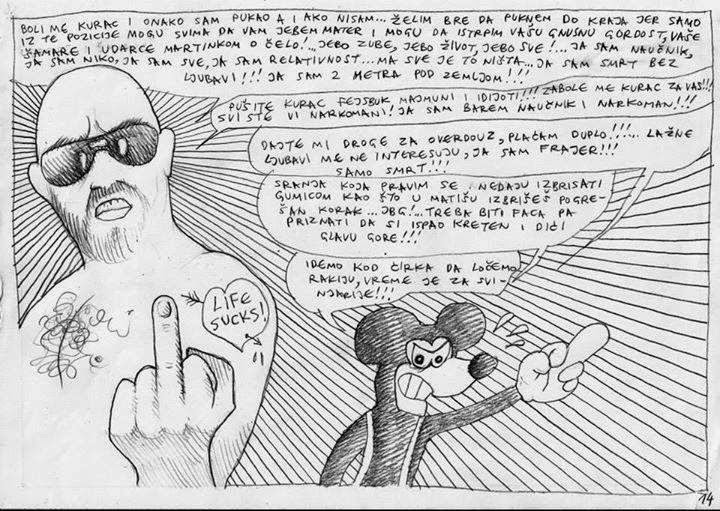 BOLI ME KURAC I ONAKO SAM PUKAO A I AKO NISAM... ŽELIM BRE DA PUKNEM DO KRAJA JER SAMO
IZ TE POZICIJE MOGU SVIMA DA VAM JEBEM MATER I MOGU DA ISTRPIM VAŠU GNUSNU GORDOST, VAŠE
ŠAMARE I UDARCE MARTINKOM O ČELO!...JEBO ZUBE, JEBO ŽIVOT, JEBO SVE!... JA SAM NAUČNIK,
JA SAM NIKO, JA SAM SVE, JA SAM RELATIVNOST... MA SVE JE TO NIŠTA...JA SAM SMRT BEZ
LJUBAVI!!! JA SAM 2 METRA POD ZEMLJOM!!!
PUŠITE KURAC FEJSBUK MAJMUNI I IDIJOTI!!! ZABOLE ME KURAC ZA VAS!!!
SVI STE VI NARKOMANI! JA SAM BAREM NAUČNIK I NARKOMAN!!!
DAJTE MI DROGE ZA OVERDOUZ, PLAĆAM DUPLO!!!... LAŽNE
LJUBAVI ME NE INTERESUJU, JA SAM FRAJER!!!
SAMO SMRT!!!
SRANJA KOJA PRAVIM SE NEDAJU IZBRISATI
GUMICOM KAO ŠTO U MATIŠU IZBRIŠEŠ POGRE-
ŠAN KORAK...JBG!...TREBA BITI FACA PA
PRIZNATI DA SI ISPAO KRETEN I DIĆI
GLAVU GORE!!!
IDEMO KOD ĆIRKA DA LOČEMO
RAKIJU, VREME JE ZA SVI-
NJARIJE!!!
LIFE
SUCKS!
14